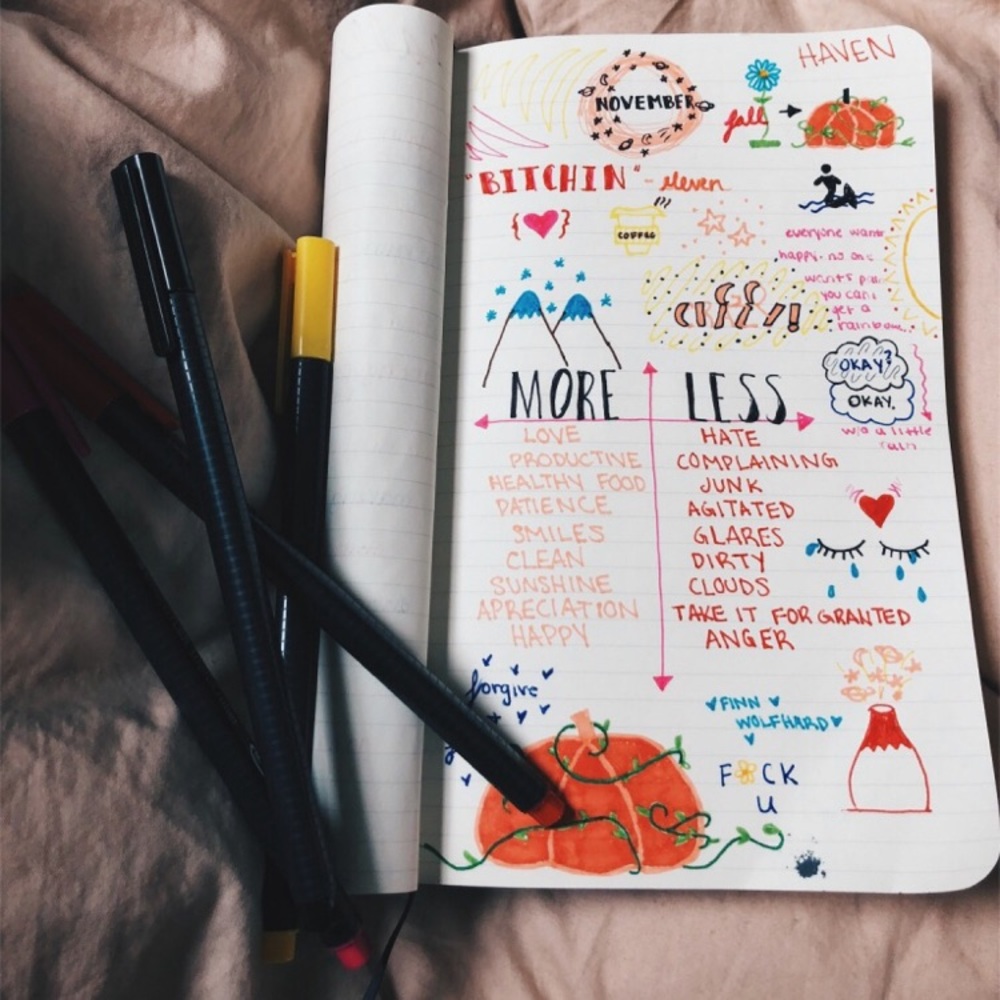 HAVEN
NOVEMBER
fall
"BITCHIN" - eleven
COFFEE
everyone wants
happy. no one
wants pain
you can't
get a
rainbow...
w/o a little
rain
OKAY?
OKAY.
MORE
LOVE
PRODUCTIVE
HEALTHY FOOD
PATIENCE
SMILES
CLEAN
SUNSHINE
APRECIATION
HAPPY
LESS
HATE
COMPLAINING
JUNK
AGITATED
GLARES
DIRTY
CLOUDS
TAKE IT FOR GRANTED
ANGER
forgive
FINN
WOLFHARD
F CK
U